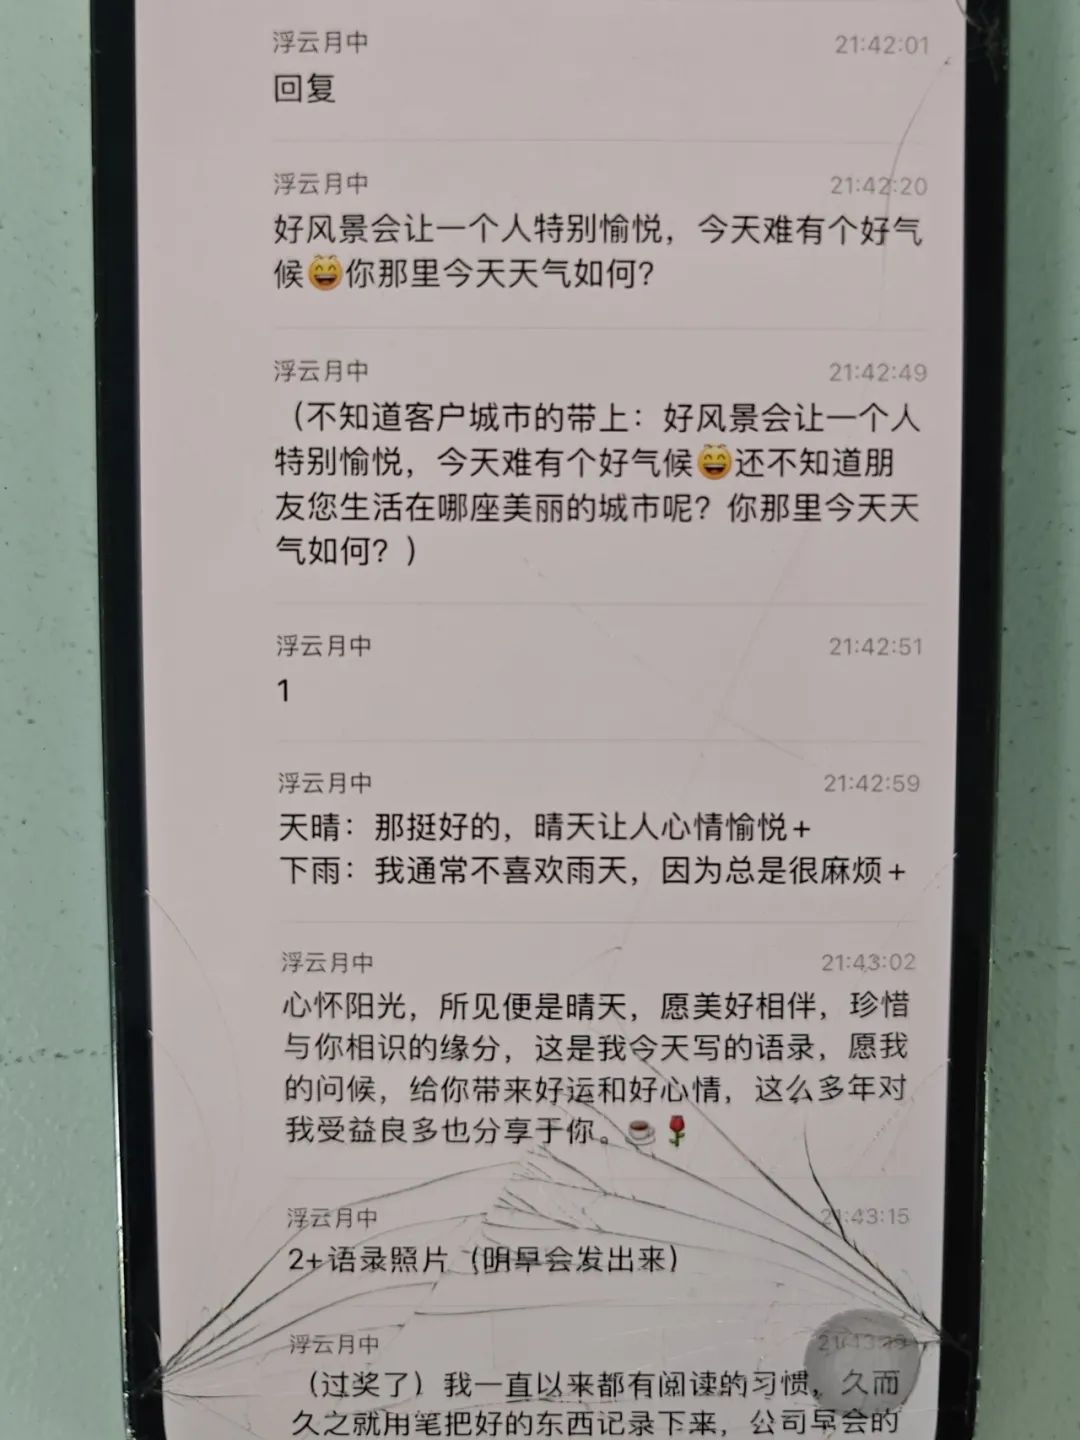 浮云月中 21:42:01
回复
浮云月中 21:42:20
好风景会让一个人特别愉悦，今天难有个好气
候😄你那里今天天气如何？
浮云月中 21:42:49
（不知道客户城市的带上：好风景会让一个人
特别愉悦，今天难有个好气候😄还不知道朋
友您生活在哪座美丽的城市呢？你那里今天天
气如何？）
浮云月中 21:42:51
1
浮云月中 21:42:59
天晴：那挺好的，晴天让人心情愉悦+
下雨：我通常不喜欢雨天，因为总是很麻烦+
浮云月中 21:43:02
心怀阳光，所见便是晴天，愿美好相伴，珍惜
与你相识的缘分，这是我今天写的语录，愿我
的问候，给你带来好运和好心情，这么多年对
我受益良多也分享于你。☕🌹
浮云月中 21:43:15
2+语录照片（明早会发出来）
浮云月中
（过奖了）我一直以来都有阅读的习惯，久而
久之就用笔把好的东西记录下来，公司早会的